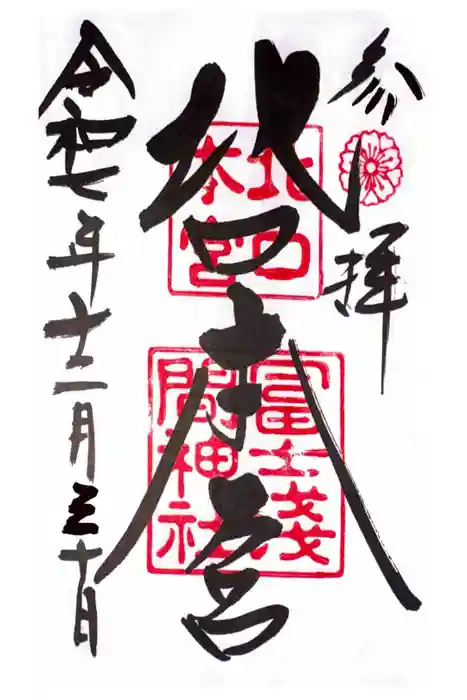 参拝
北口本宮
北口本宮
冨士淺間神社
令和七年十二月三十日